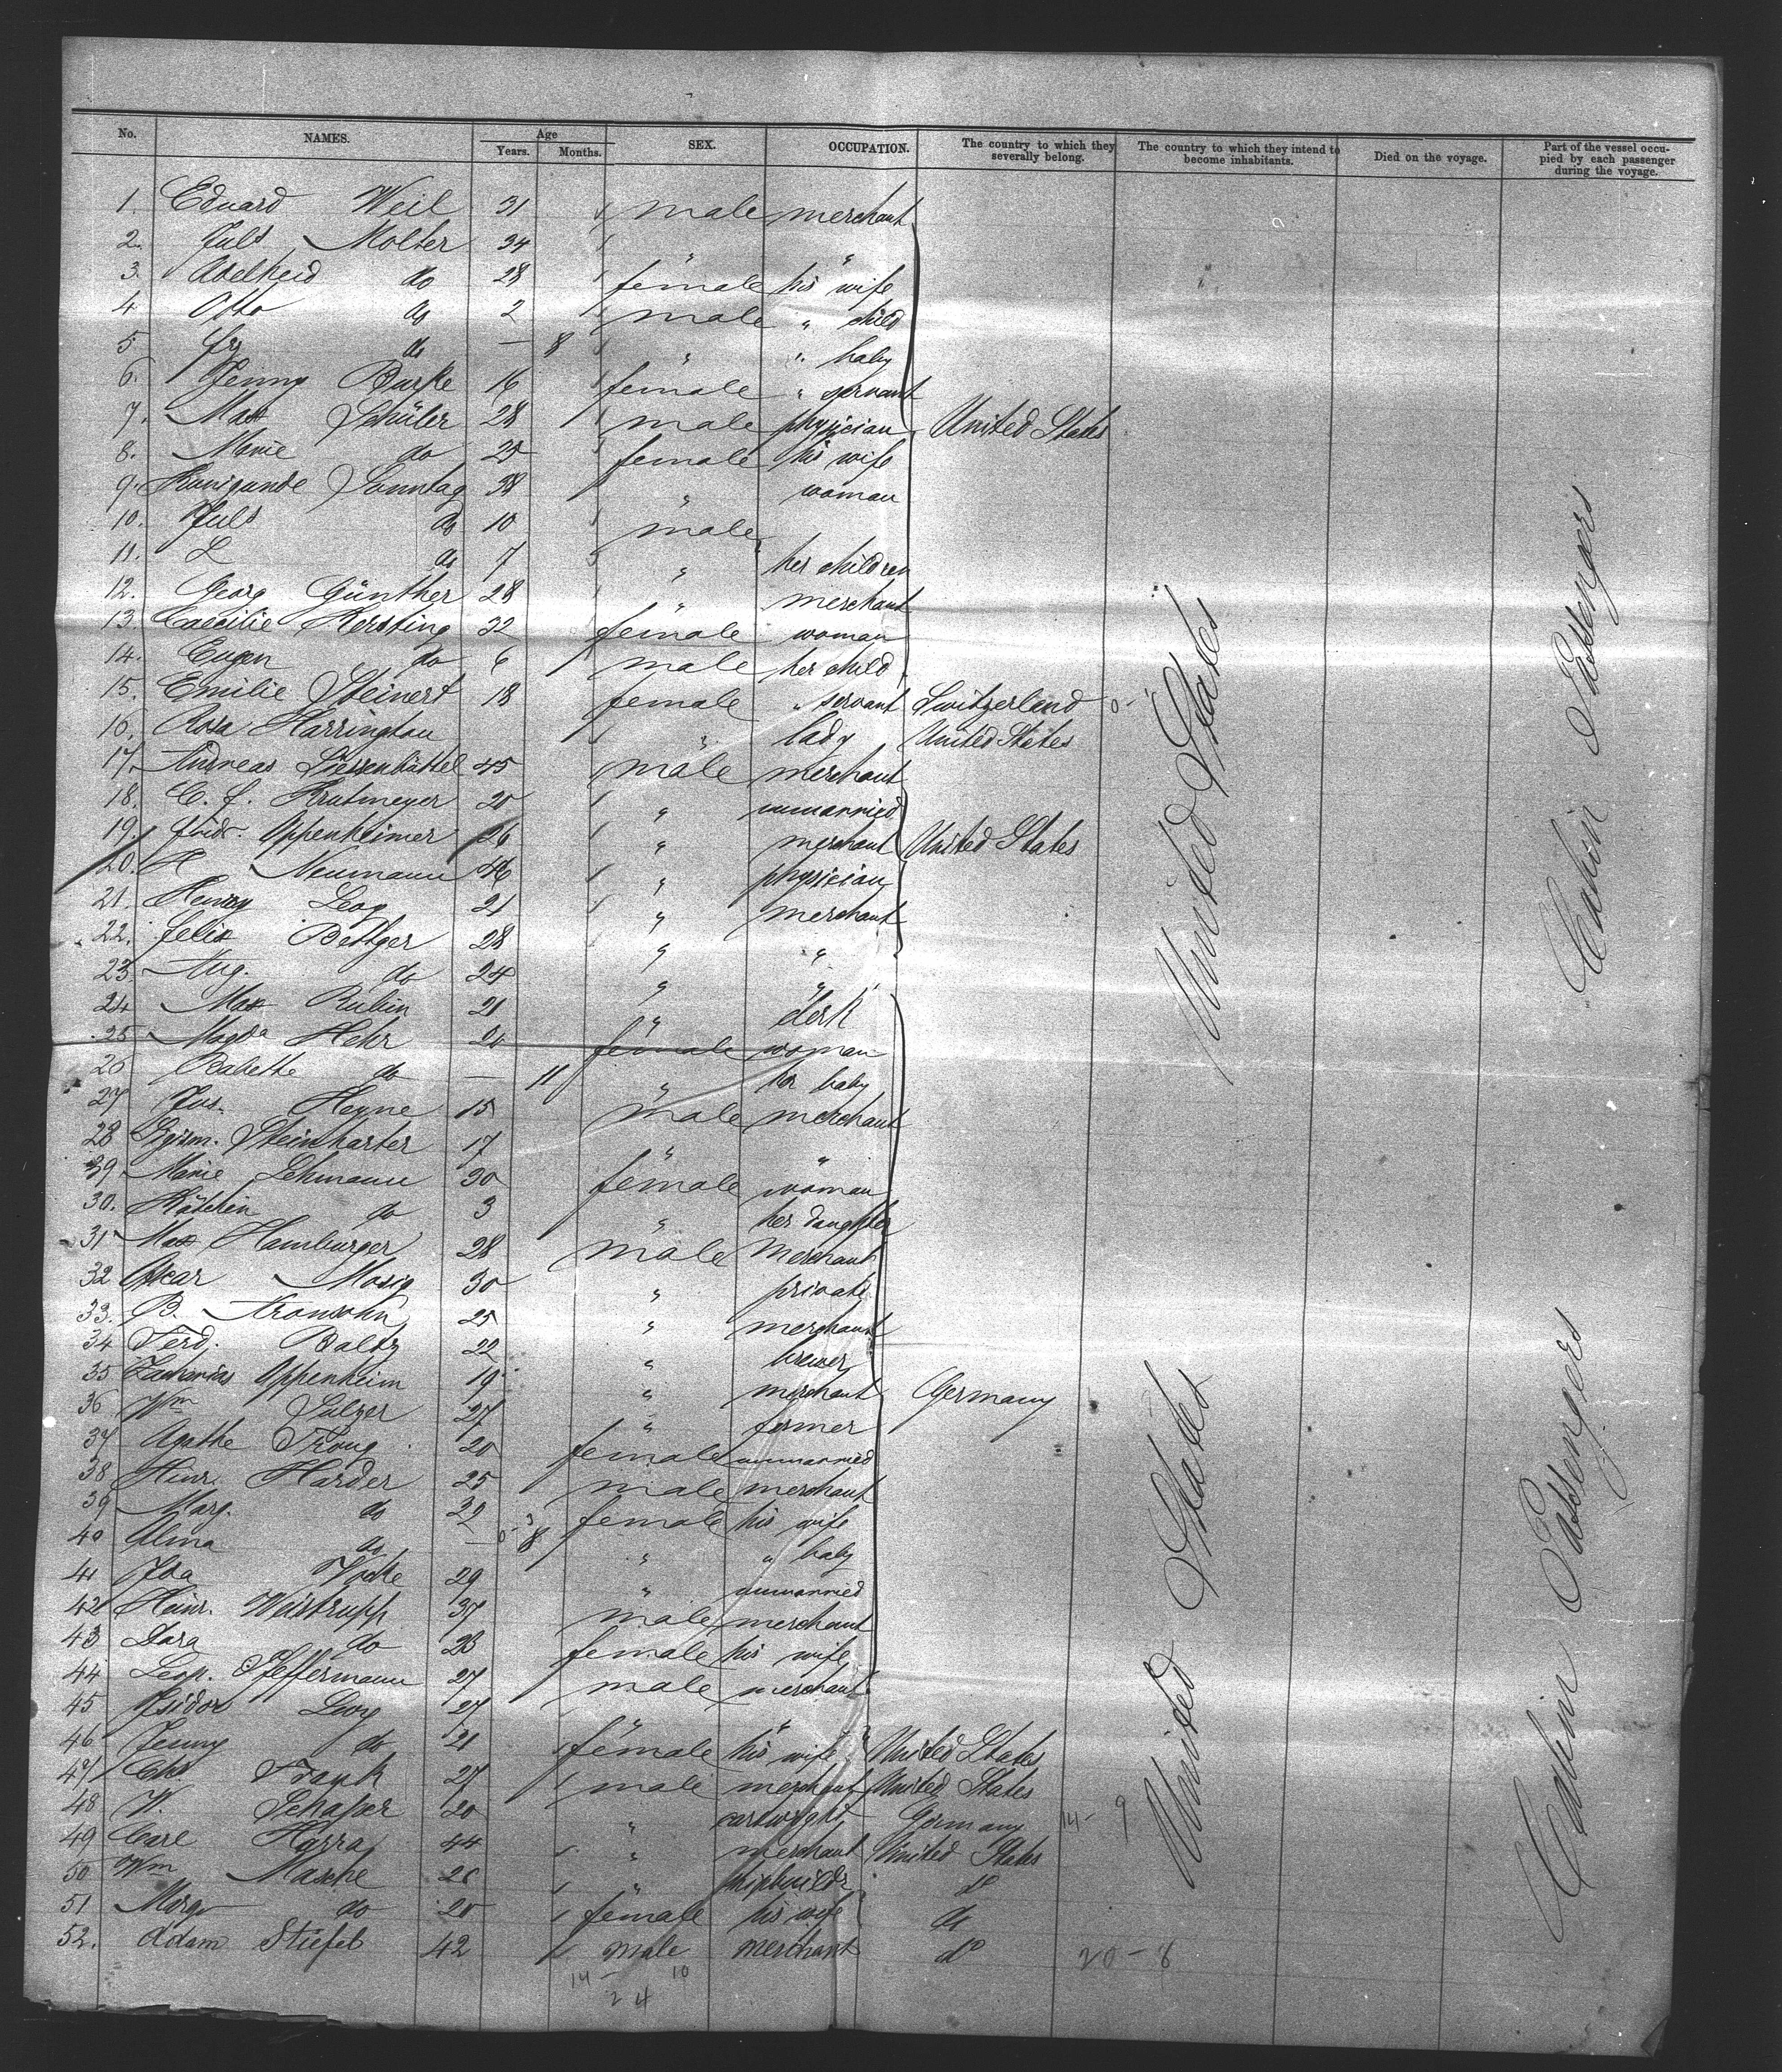 No. NAMES. Age Years. Months. SEX. OCCUPATION. The country to which they severally belong. The country to which they intend to become inhabitants. Died on the voyage. Part of the vessel occupied by each passenger during the voyage.
1. Eduard Weil 31 male merchant
2. Juls Molter 34 " "
3. Adelheid do 28 female his wife
4 Otto do 2 male " child
5 do — 8 " " baby
6. Jenny Barke 16 female " servant
7. Max Schüler 28 male physician United States
8. Marie do 25 female his wife
9. Kunigunde Sonntag 38 " woman
10. Juls do 10 male
11. L do 7 " her children
12. Georg Günther 28 " merchant
13. Caecilie Kersting 32 female woman
14. Eugen do 6 male her child
15. Emilie Steinert 18 female " servant Switzerland
16. Rosa Harrington " lady United States
17. Andreas 45 male merchant
18. C. f. Krutmeyer 20 " unmarried
19. fridr. Oppenheimer 26 " merchant United States
20. H Neumann 46 " physician
21. Henry Leog 21 " merchant
22. felix Bettger 28 " "
23. Aug. do 24 " "
24 Max Rubin 21 " clerk
25 Magda Hehr 20 female woman
26 Babette do — 11 " her baby
27 Jos. Heyne 15 male merchant
28 Sigism. Steinharter 17 " "
29 Marie Lehmann 30 female woman
30. Käthchen do 3 " her daughter
31 Max Hamburger 28 male merchant
32 Oscar Mosig 30 " private
33. B. Aronsohn 25 " merchant
34 Ferd. Baltz 22 " brewer
35 Zacharias Oppenheim 19 " merchant Germany
36 Wm Sulzer 27 " farmer
37 Agathe Troug 20 female unmarried
38 Hinr. Harder 25 male merchant
39 Marg. do 22 female his wife
40 Alma do — 8 " " baby
41 Ida 29 " unmarried
42 Heinr. Weistrupp 37 male merchant
43 Dora do 23 female his wife
44 Leop. Pfeffermann 27 male merchant
45 Isidor Levy 27 " "
46 Jenny do 21 female his wife United States
47 Chs Frank 27 male merchant United States
48 W. Schaper 20 " cartwright Germany 14- 9
49 Carl Harra 44 " merchant United States
50 Wm Maschke 26 " shipbuildr do
51 Margr do 20 female his wife do
52. Adam Stiefel 42 male merchant do 20 - 8
14 - 10
24
United States
United States
Cabin Passengers
Cabin Passengers